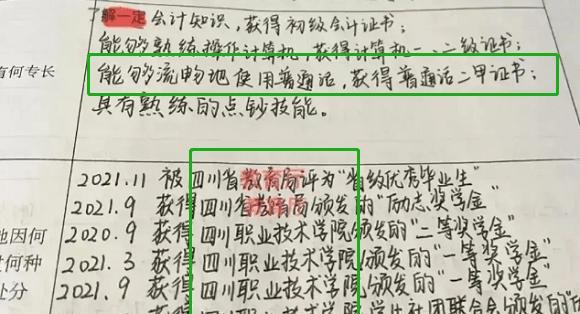 了解一定会计知识,获得初级会计证书;
能够熟练操作计算机,获得计算机一、二级证书;
有何专长
能够流畅地使用普通话,获得普通话二甲证书;
具有熟练的点钞技能。
2021.11 被四川省教育局评为“省级优秀毕业生”
2021.9 获得四川省教育局颁发的“励志奖学金”
地因何 2020.9 获得四川职业技术学院颁发的“二等奖学金”
何种 2021.3 获得四川职业技术学院颁发的“一等奖学金”
处分 2021.9 获得四川职业技术学院颁发的“一等奖学金”
学生社团联合会颁发的